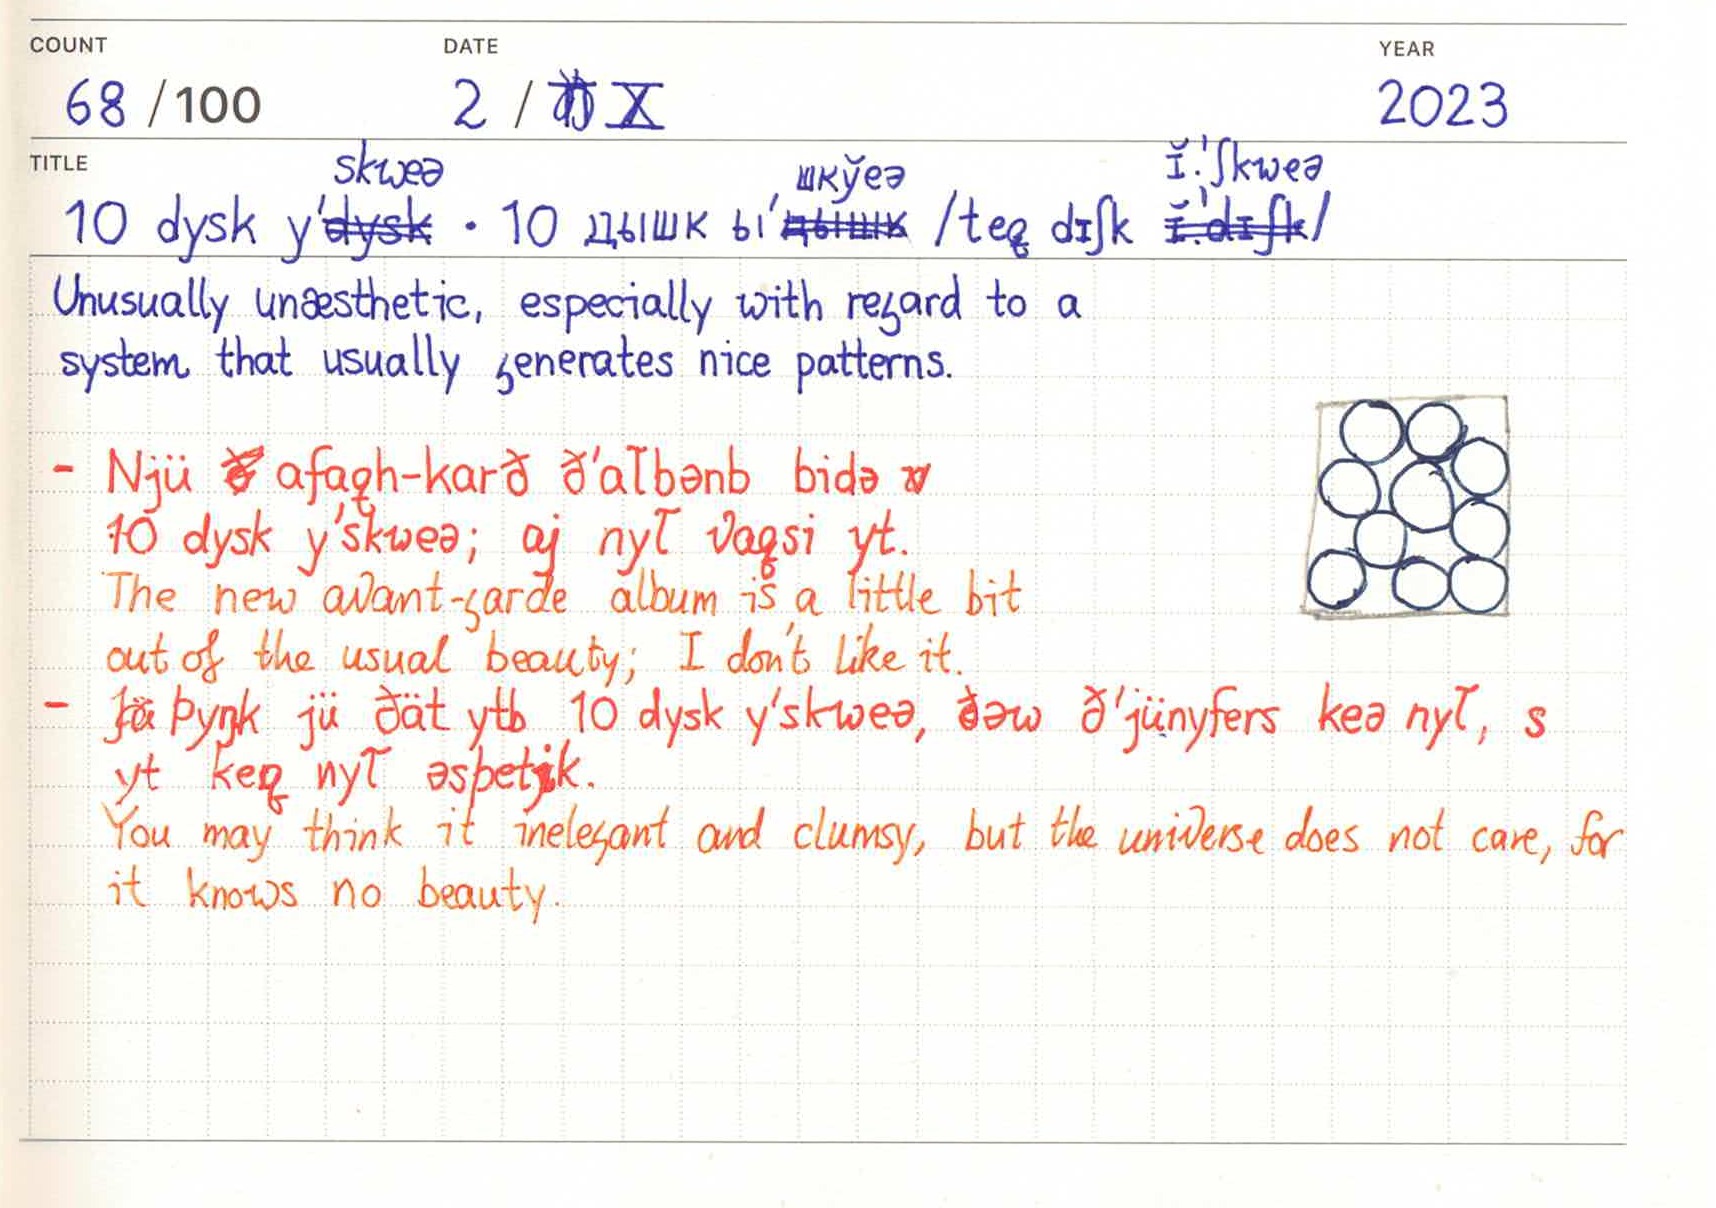 COUNT DATE YEAR
68 /100 2 / X 2023
TITLE skweə шкўеә ɪ̆.ˈʃkweə
10 dysk y'dysk · 10 цышк ы'цышк /teƞ dɪʃk ɪ̆.ˈdɪʃk/
Unusually unæsthetic, especially with regard to a
system that usually generates nice patterns.
- Njü afaƞh-karð ð'albənb bidə
10 dysk y'skweə; aj nyl vaƞsi yt.
The new avant-garde album is a little bit
out of the usual beauty; I don't like it.
- þyƞk jü ðät ytb 10 dysk y'skweə, ðəw ð'jünyfers keə nyl, s
yt keƞ nyl əspetjk.
You may think it inelegant and clumsy, but the universe does not care, for
it knows no beauty.